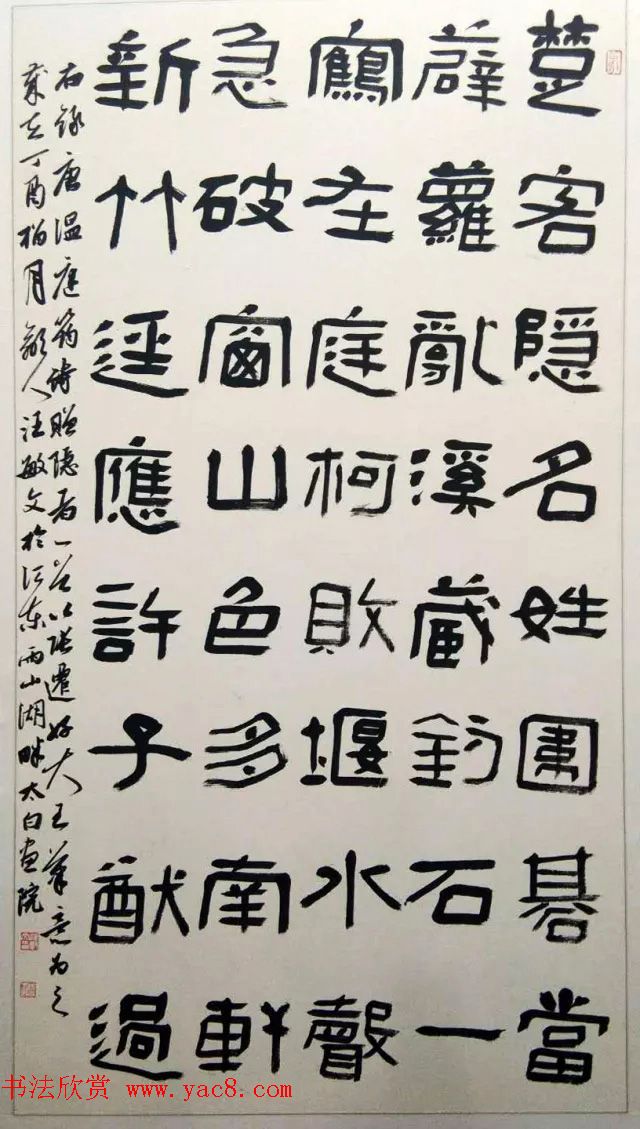 楚客隱名姓圍碁當
薜蘿亂溪藏釣石一
鶴在庭柯敗堰水聲
急破窗山色多南軒
新竹逕應許子猷過
右録唐温庭筠詩贈隱者一首以張遷好大王筆意為之
歲在丁酉柏月歙人汪敏文於江東雨山湖畔太白畫院
书法欣赏 www.yac8.com